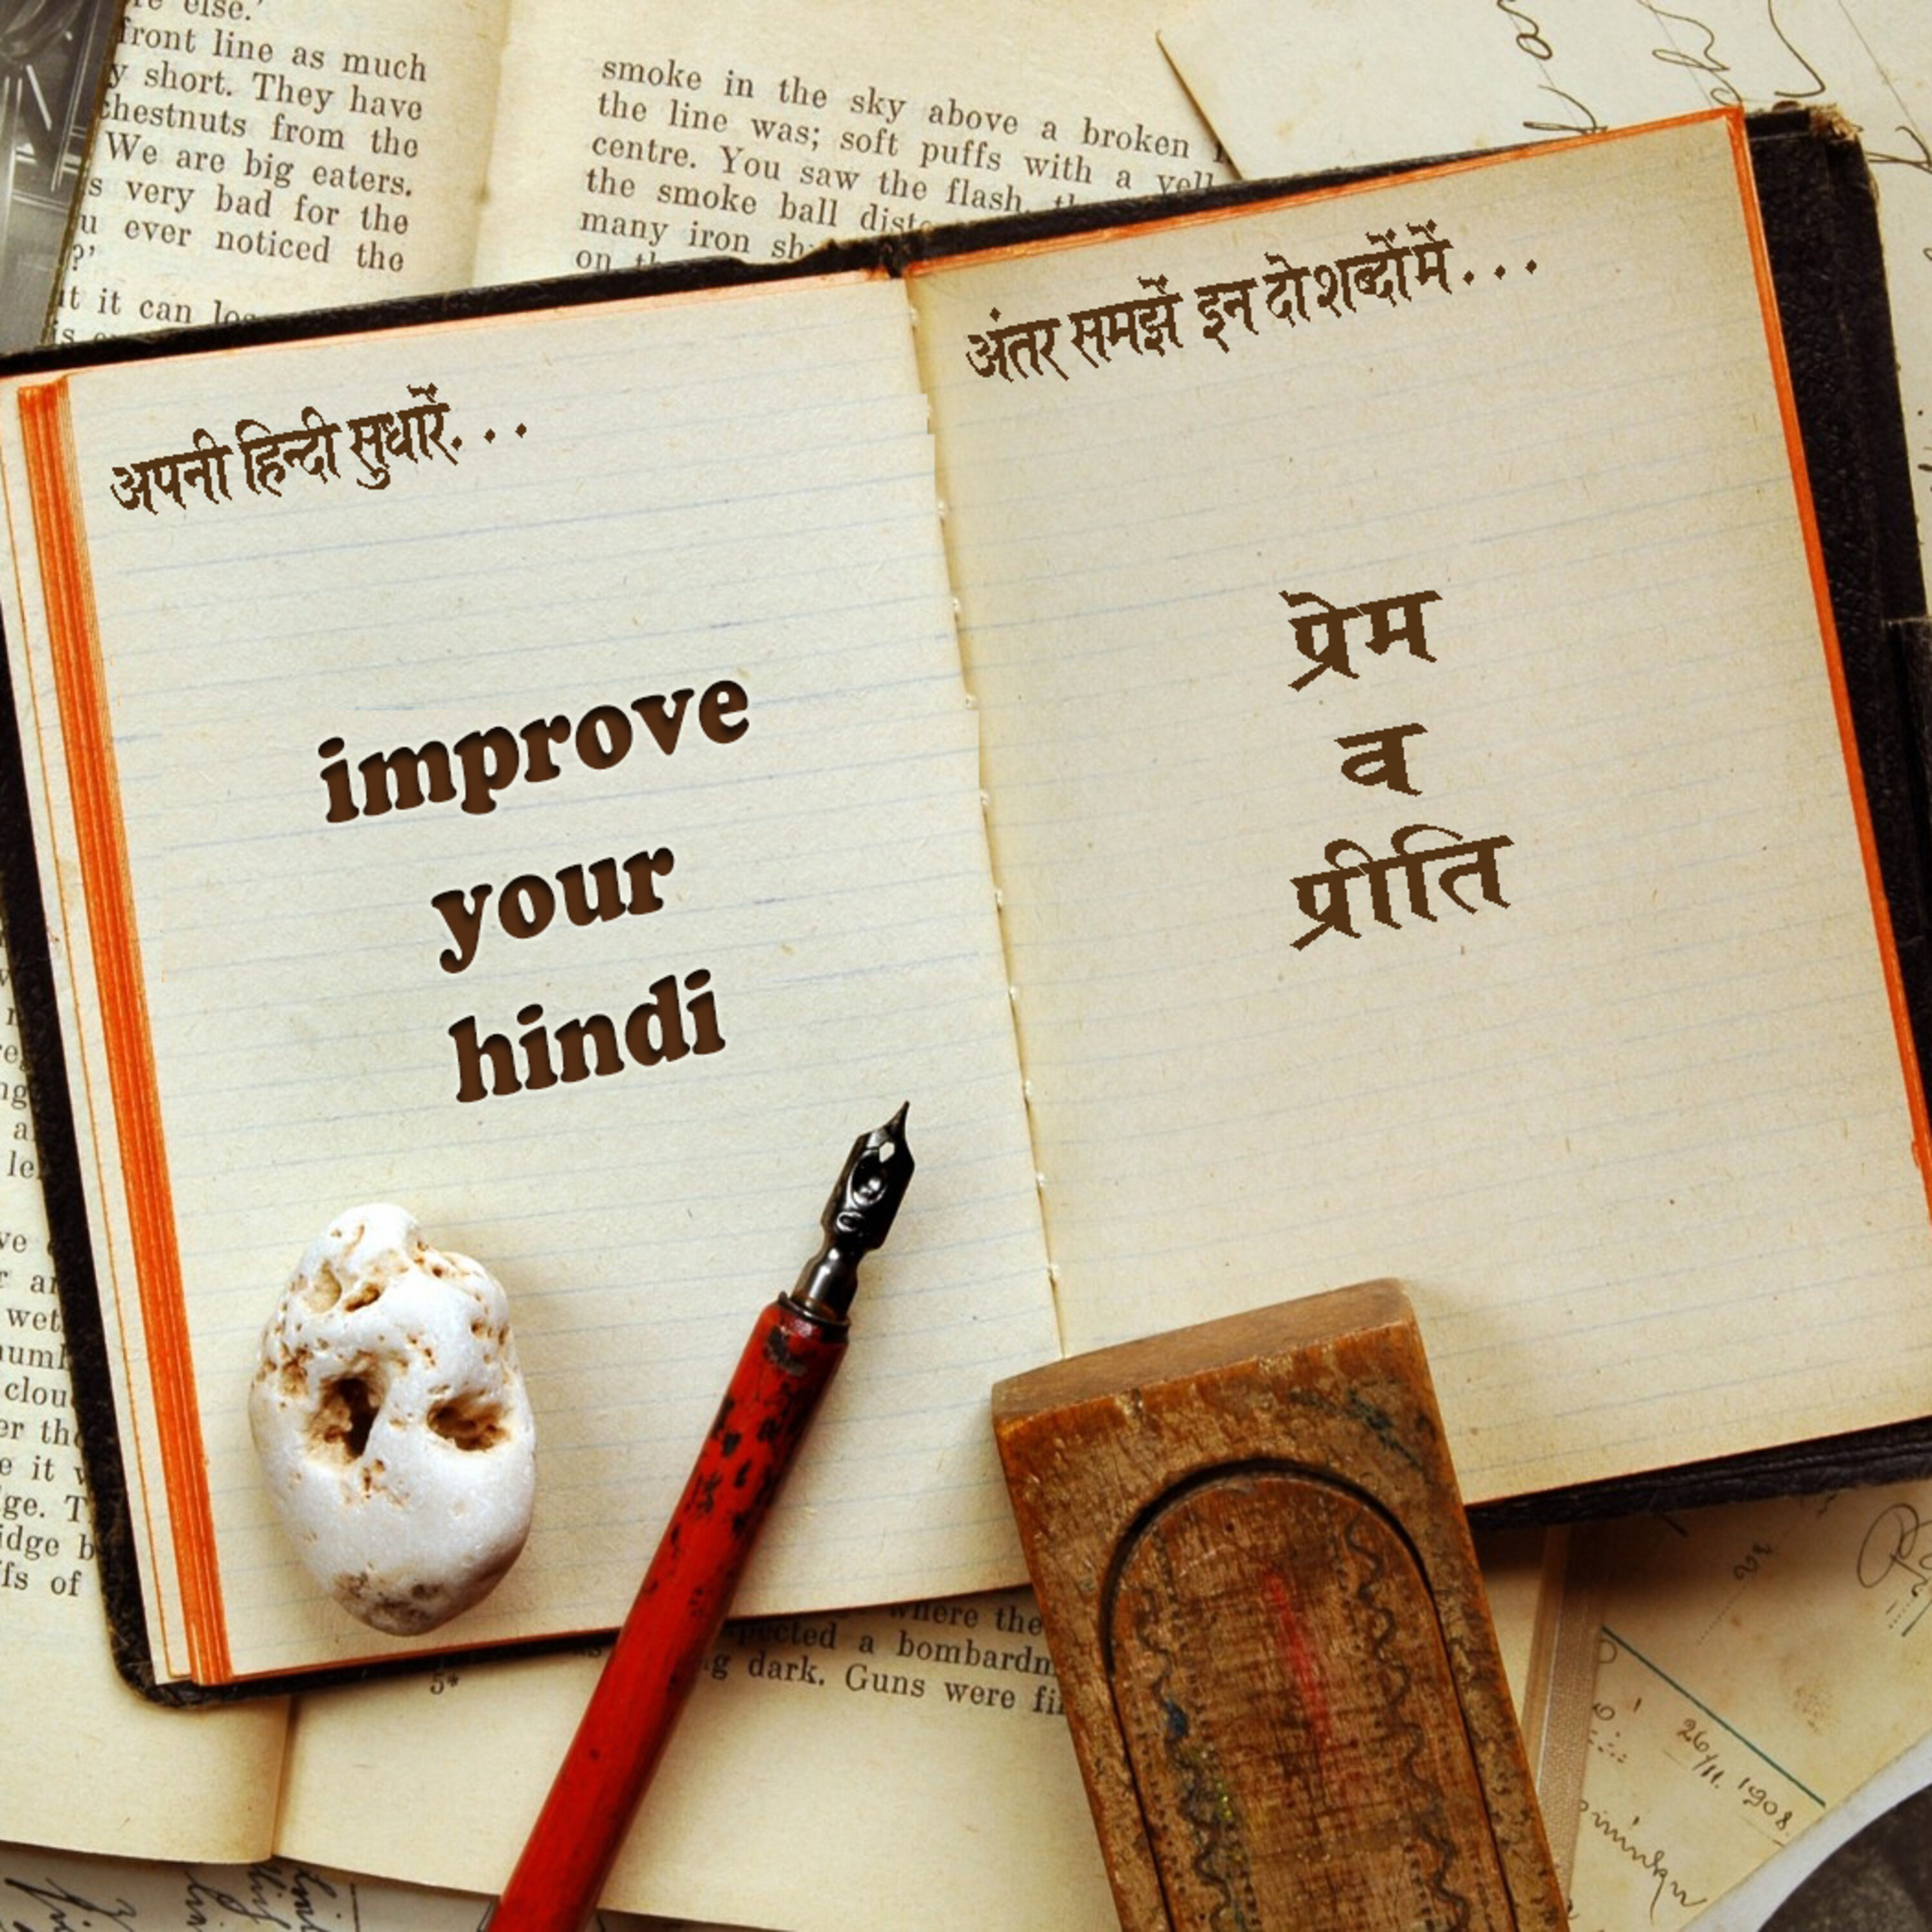 re else.'
front line as much
y short. They have
chestnuts from the
We are big eaters.
s very bad for the
u ever noticed the
?'
it it can
smoke in the sky above a broken
the line was; soft puffs with a
centre. You saw the flash,
the smoke ball
many iron
on
अपनी हिन्दी सुधारें. . .
improve
your
hindi
अंतर समझें इन दो शब्दों में . . .
प्रेम
व
प्रीति
where the
a bombardm
dark. Guns were
5*
wet
clou
it
idge
of
26/11. 1908.